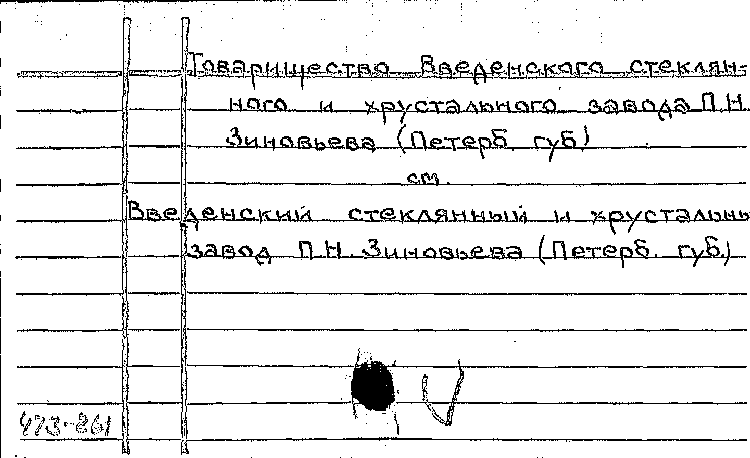 Товарищество Введенского стеклян-
ного и хрустального завода П.Н.
Зиновьева (Петерб. губ.)
см.
Введенский стеклянный и хрустальны
завод П.Н. Зиновьева (Петерб. губ.)
473-861